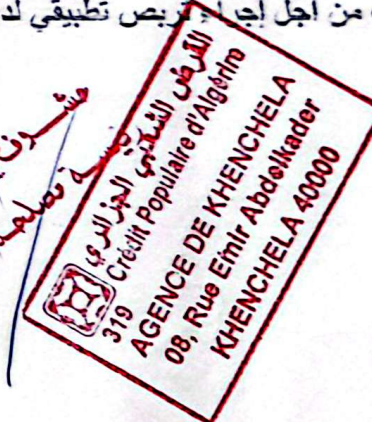 من أجل إجراء تربص تطبيقي لد
القرض الشعبي الجزائري
Crédit Populaire d'Algérie
319
AGENCE DE KHENCHELA
08, Rue Emir Abdelkader
KHENCHELA 40000